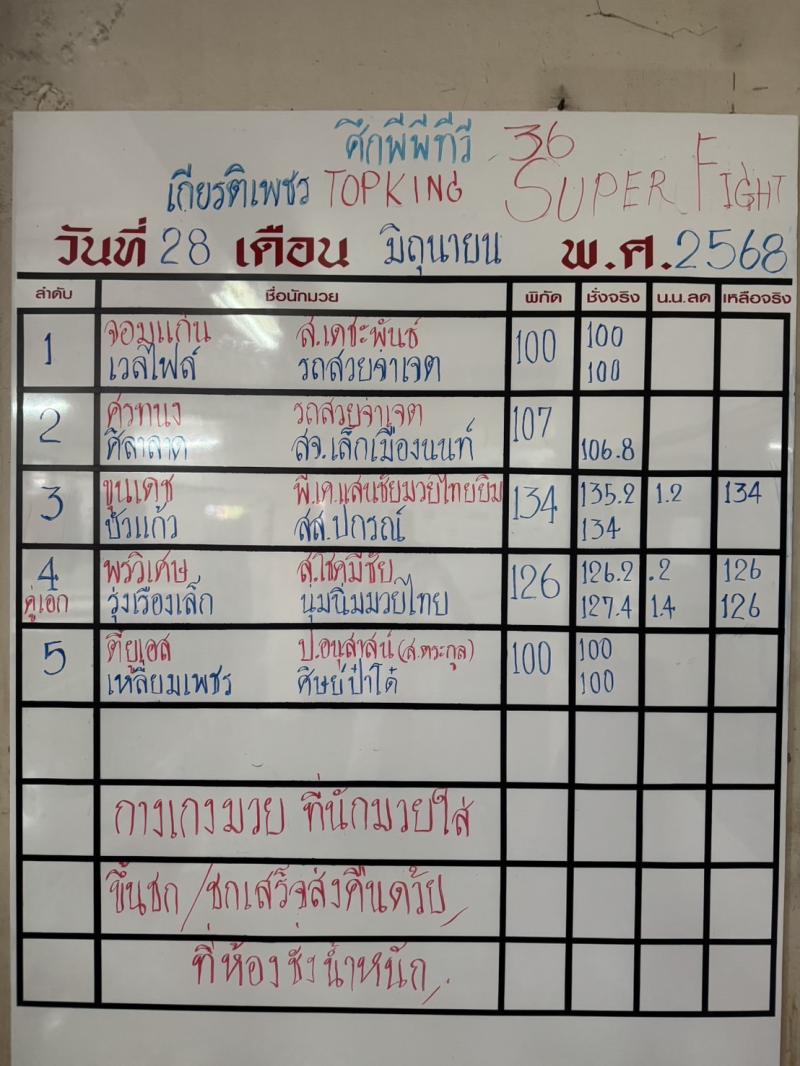 ศึกพีพีทีวี 36
เกียรติเพชร TOPKING SUPER FIGHT
วันที่ 28 เดือน มิถุนายน พ.ศ. 2568
ลำดับ ชื่อนักมวย พิกัด ชั่งจริง น.น.ลด เหลือจริง
1 จอมแก่น ส.เดชะพันธ์ 100 100
เวลไฟล์ รถสวยจ่าเจต 100
2 ศรทนง รถสวยจ่าเจต 107
ศิลาลาด สจ.เล็กเมืองนนท์ 106.8
3 ขุนเดช พี.เค.แสนชัยมวยไทยยิม 134 135.2 1.2 134
บัวแก้ว สส.ปกรณ์ 134
4 พรวิเศษ ส.โชคมีชัย 126 126.2 .2 126
คู่เอก รุ่งเรืองเล็ก นุ่มนิ่มมวยไทย 127.4 1.4 126
5 ตียูเอส ป.อนุสาสน์ (ส.ตระกูล) 100 100
เหลี่ยมเพชร ศิษย์ป๋าโด้ 100
กางเกงมวย ที่นักมวยใส่
ขึ้นชก / ชกเสร็จส่งคืนด้วย
ที่ห้องชั่งน้ำหนัก